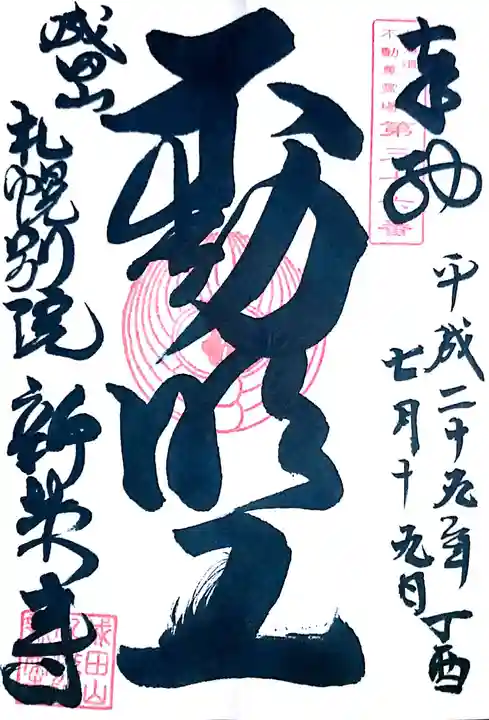 奉拝
不動尊霊場
第三十六番
平成二十九年丁酉
七月十九日
不動明王
成田山
札幌別院
新栄寺